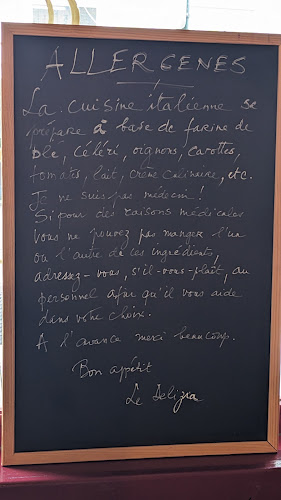 ALLERGENES
La cuisine italienne se
prépare à base de farine de
blé, Céléri, oignons, carottes,
tomates, lait, crème culinaire, etc.
Je ne suis pas médecin!
Si pour des raisons médicales
vous ne pouvez pas manger l'un
ou l'autre de ces ingrédients,
adressez-vous, s'il-vous-plaît, au
personnel afin qu'il vous aide
dans votre choix.
A l'avance merci beaucoup.
Bon appétit
Le Delizia